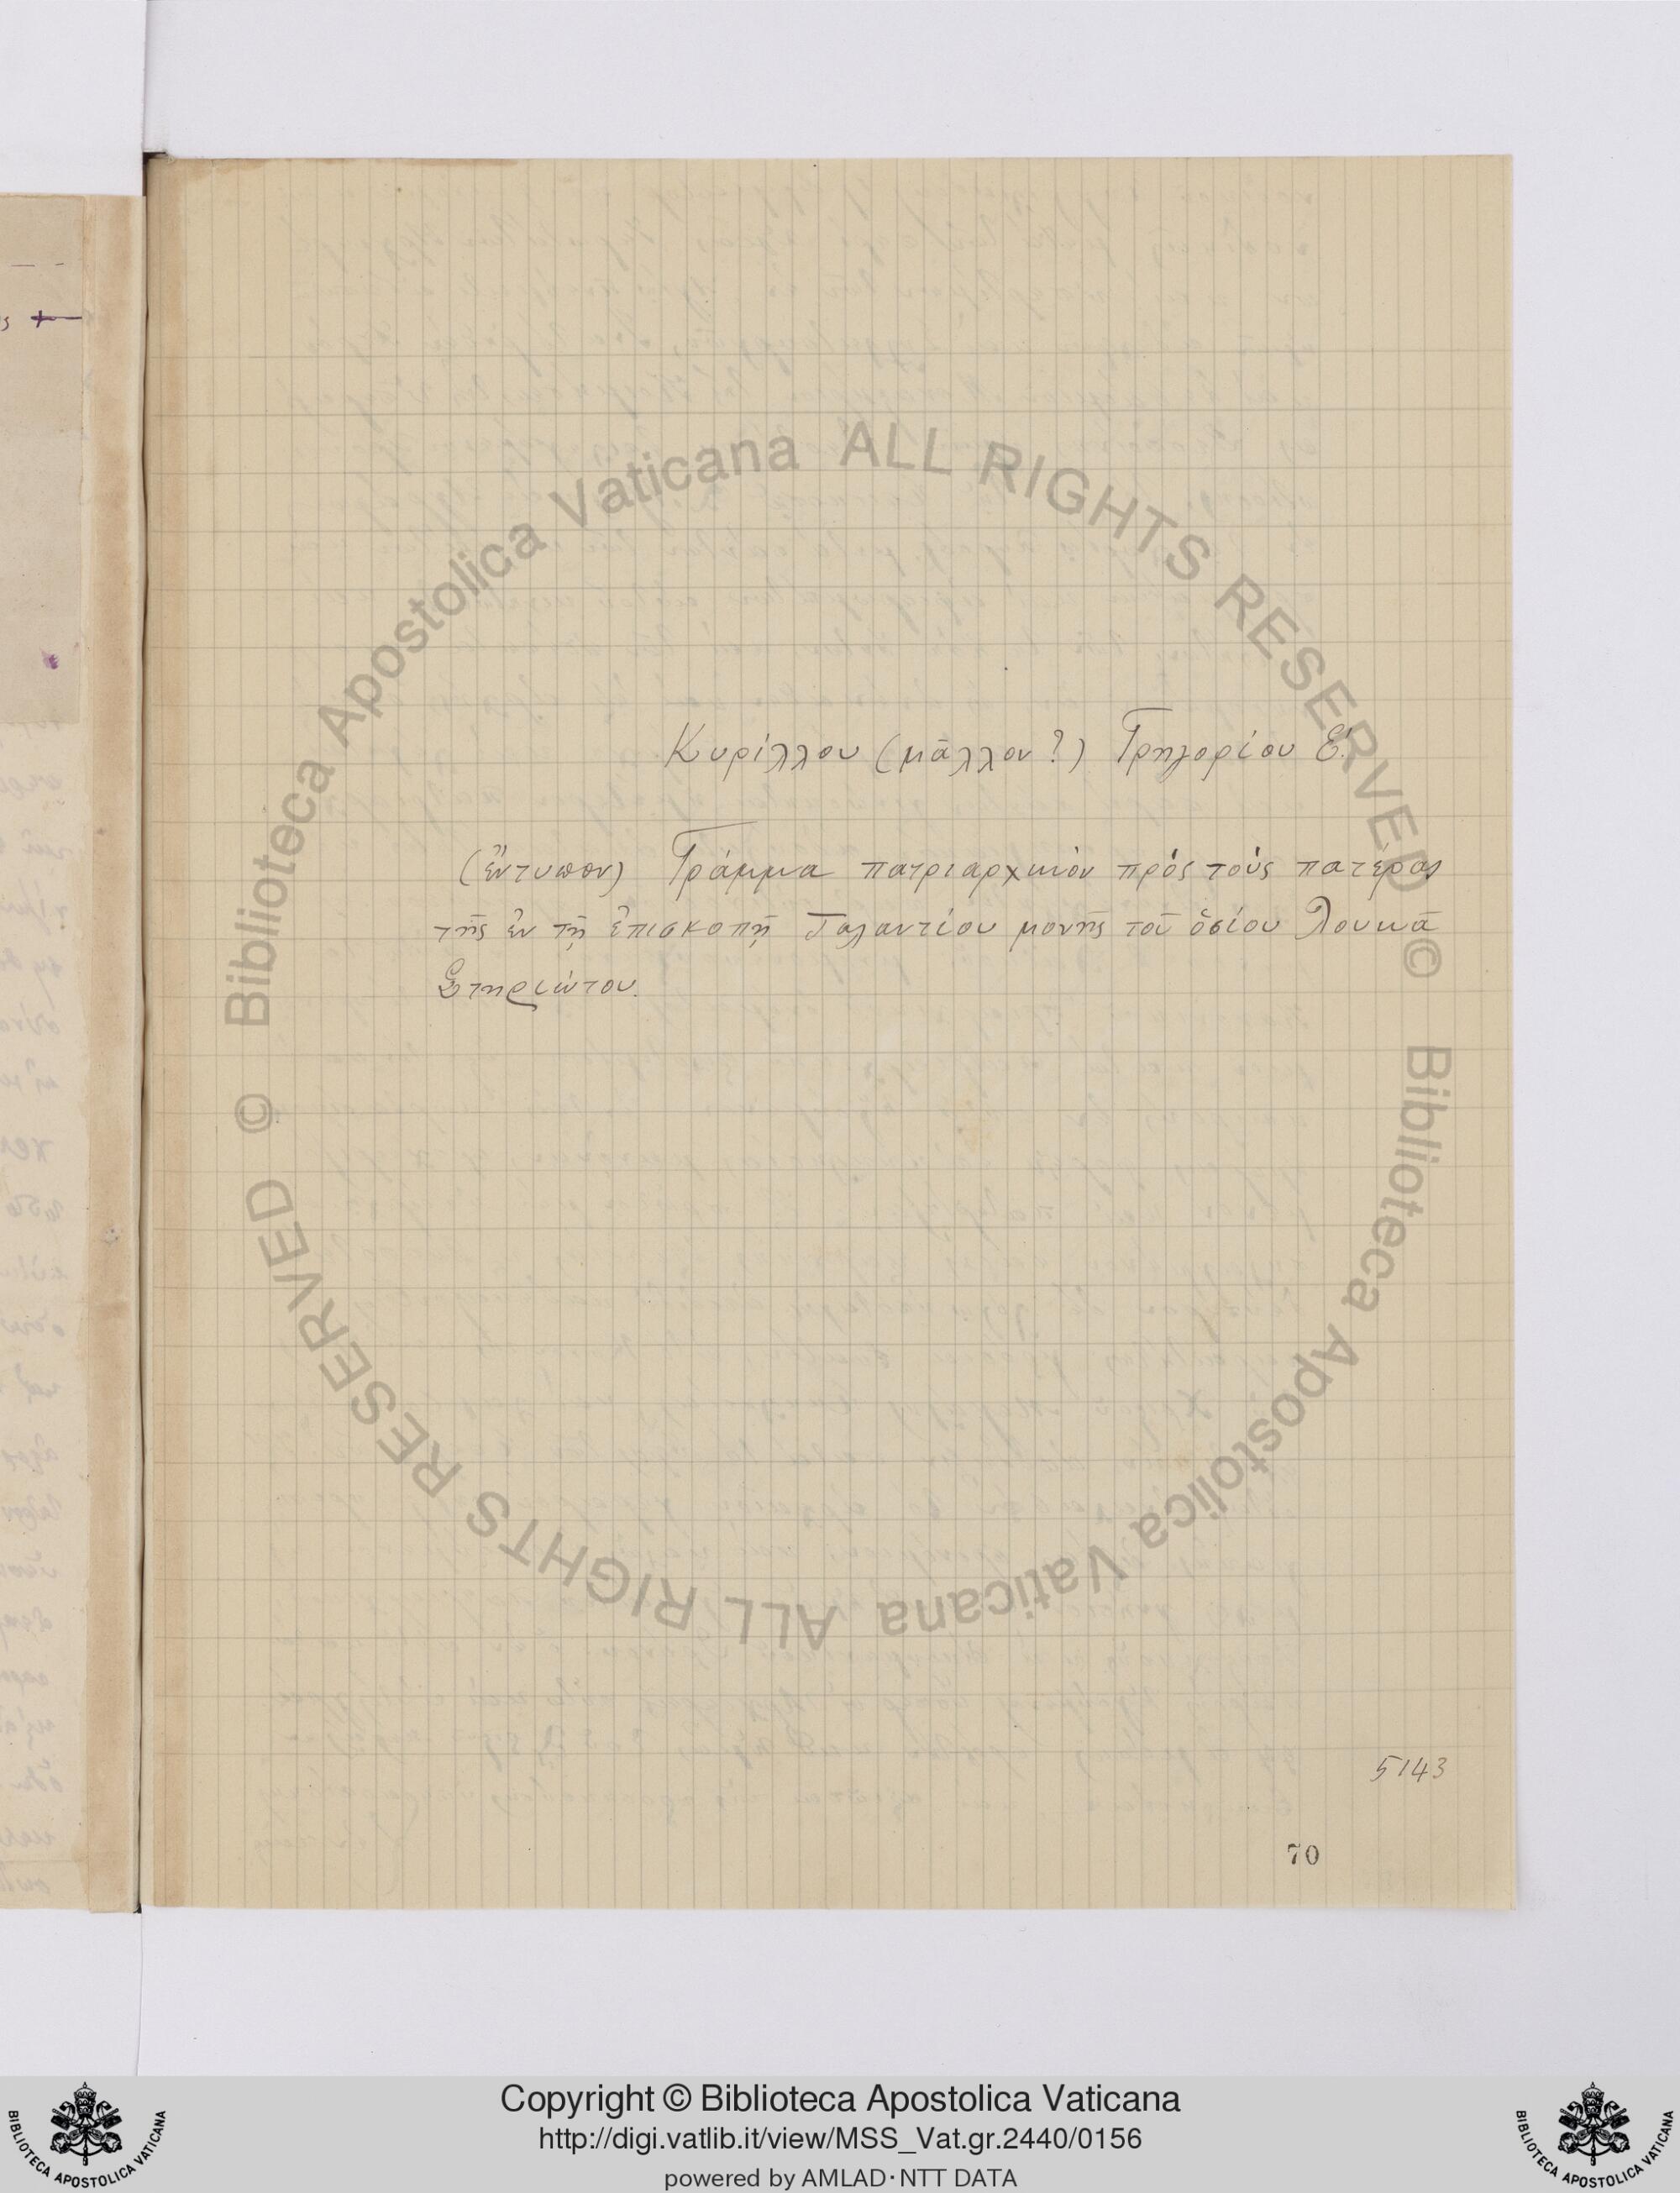 Κυρίλλου (μᾶλλον ?) Γρηγορίου Ε΄.
(ἔντυπον) Γράμμα πατριαρχικὸν πρὸς τοὺς πατέρας
τῆς ἐν τῇ ἐπισκοπῇ Ταλαντίου μονῆς τοῦ ὁσίου Λουκᾶ
Στηριώτου.
5143
70
© Biblioteca Apostolica Vaticana ALL RIGHTS RESERVED
© Biblioteca Apostolica Vaticana ALL RIGHTS RESERVED
Copyright © Biblioteca Apostolica Vaticana
http://digi.vatlib.it/view/MSS_Vat.gr.2440/0156
powered by AMLAD·NTT DATA
BIBLIOTECA APOSTOLICA VATICANA
BIBLIOTECA APOSTOLICA VATICANA